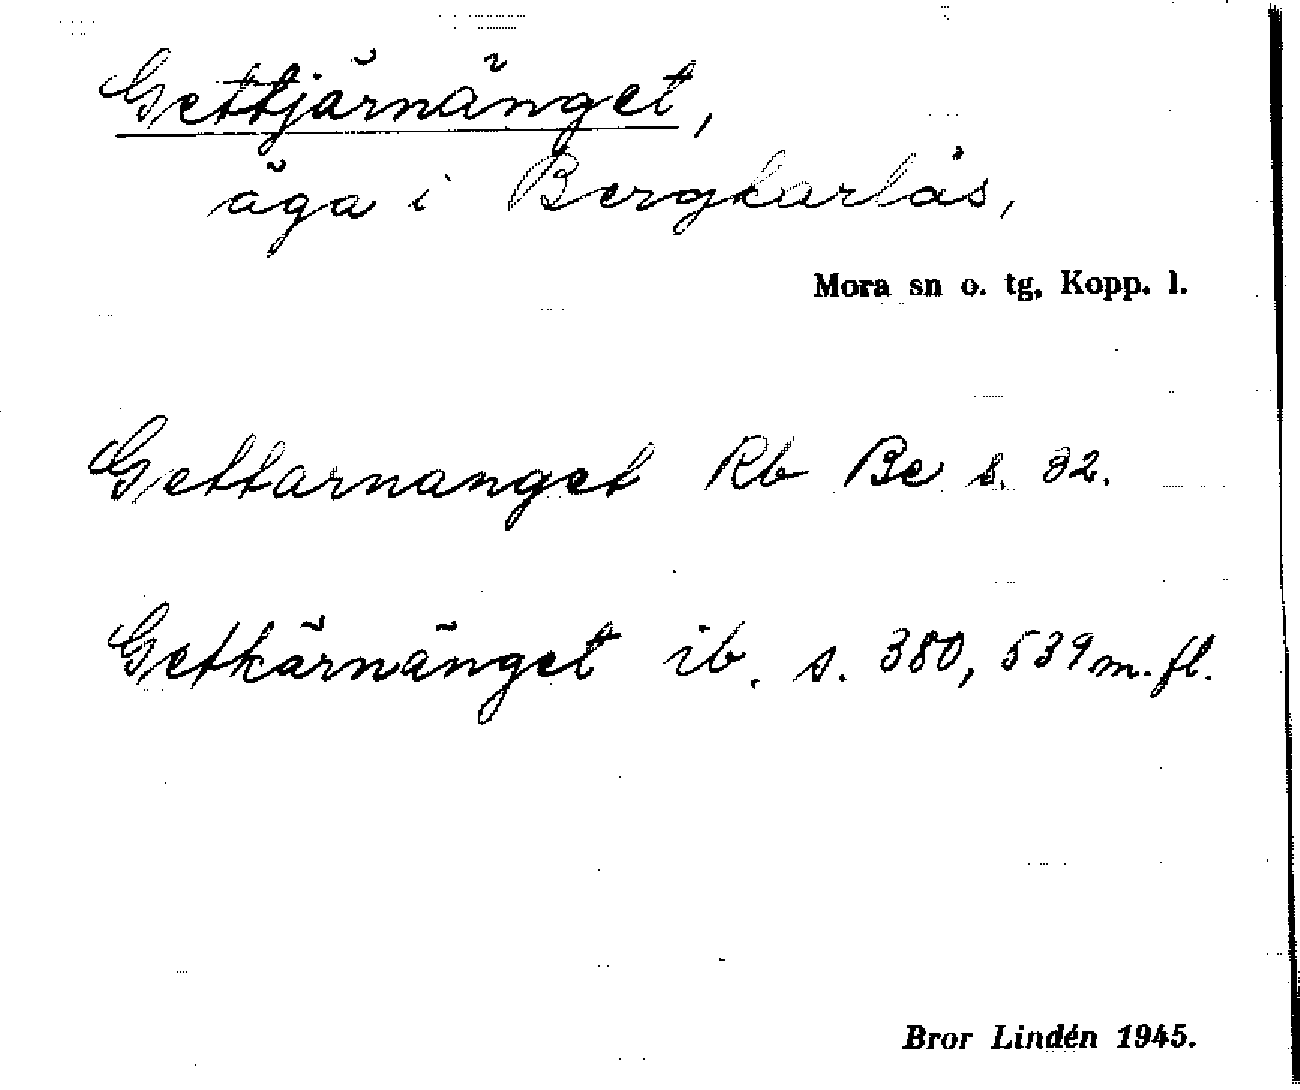 Gettjärnänget,
äga i Bergkarlås,
Mora sn o. tg, Kopp. l.
Gettarnanget Rb Be s. 32.
Getkärnänget ib. s. 380, 539 m. fl.
Bror Lindén 1945.